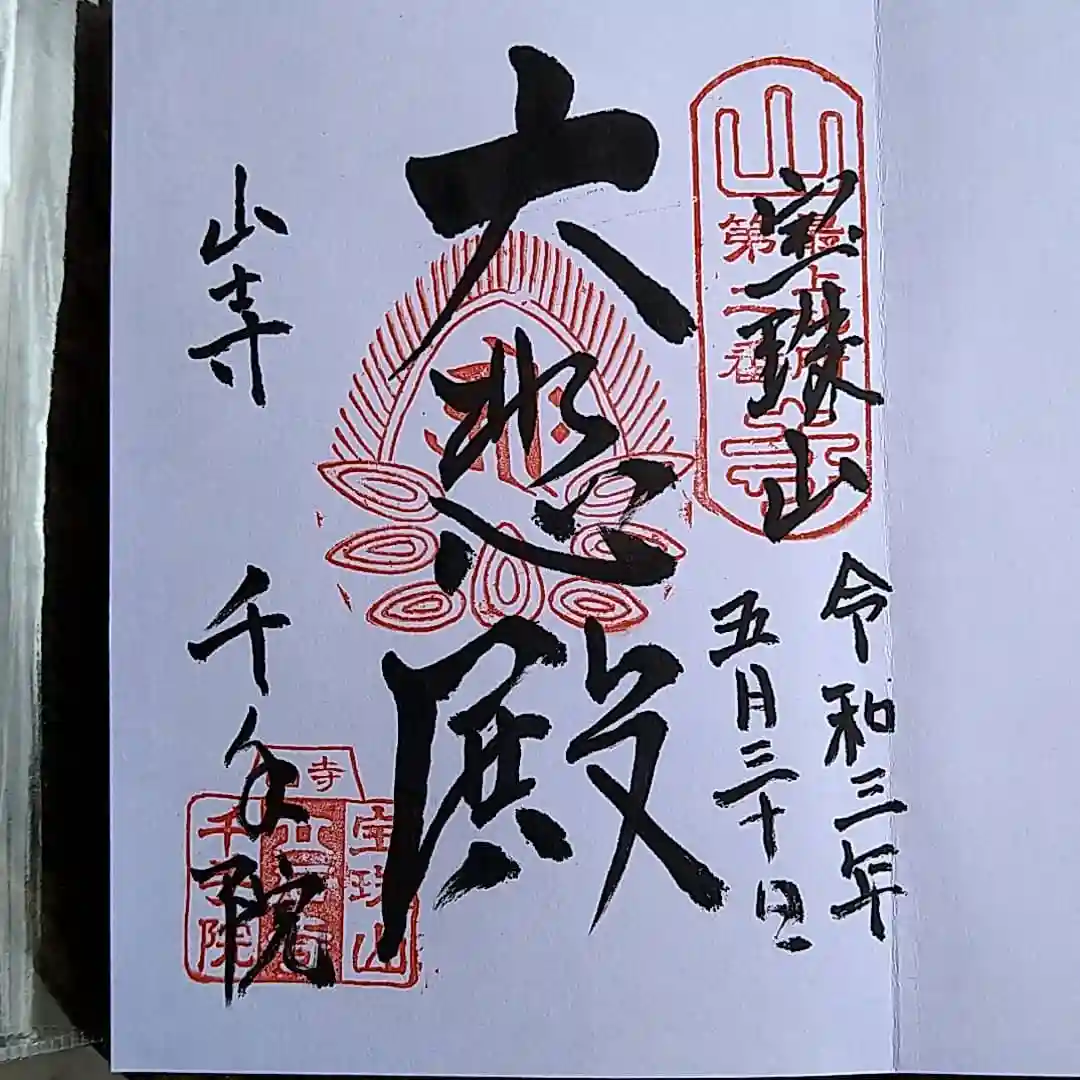 宝珠山
令和三年
五月三十日
大悲殿
山寺 千手院
山寺
第二番
寺
宝珠山
千手院